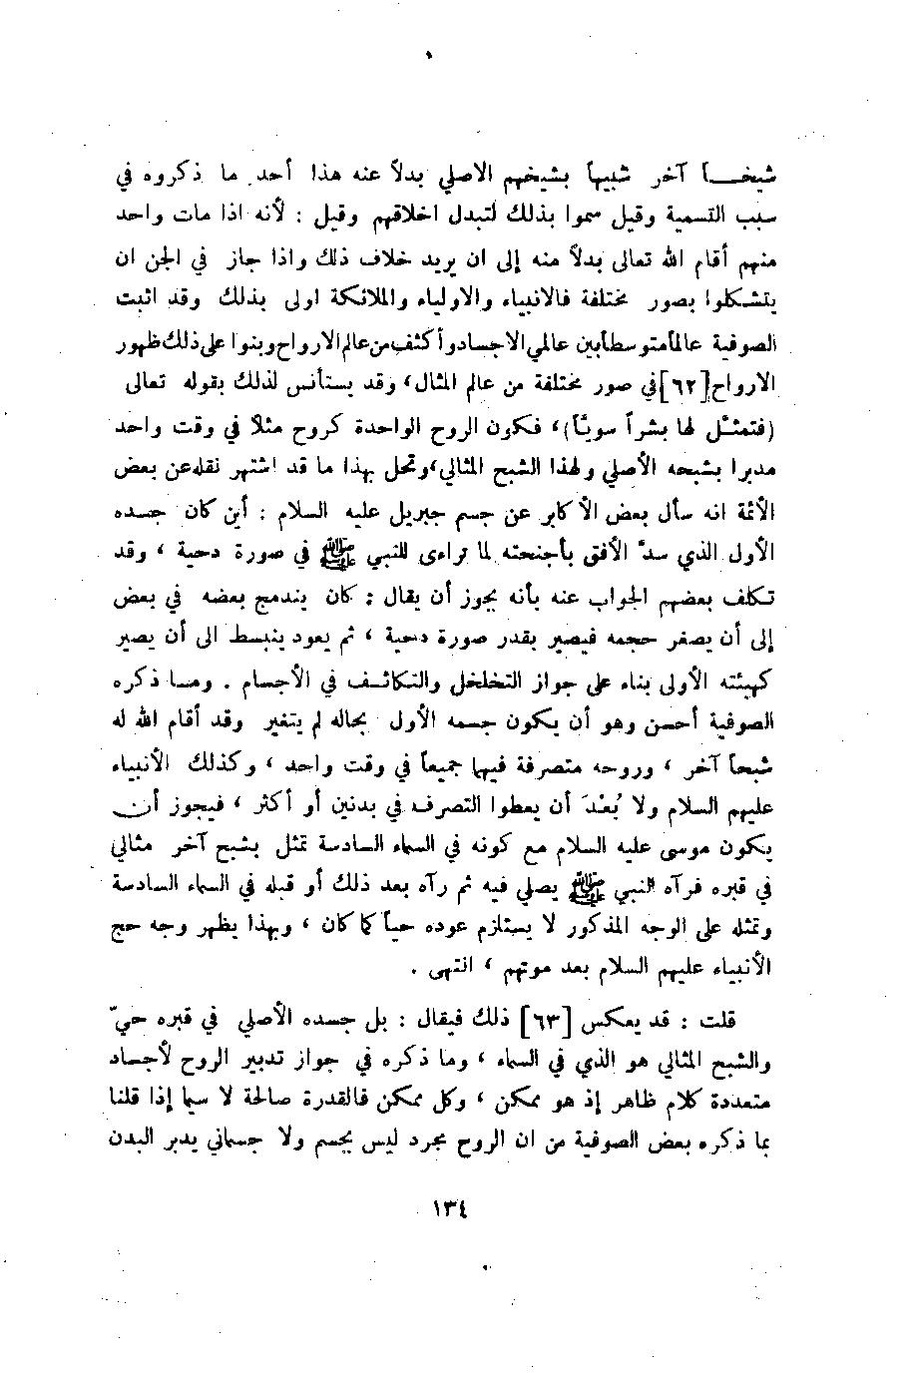 شيخـــاً آخر شبيهاً بشيخهم الاصلي بدلاً عنه هذا أحد ما ذكروه في
سبب التسمية وقيل سموا بذلك لتبدل اخلاقهم وقيل : لأنه اذا مات واحد
منهم أقام الله تعالى بدلاً منه إلى ان يريد خلاف ذلك واذا جاز في الجن ان
يتشكلوا بصور مختلفة فالانبياء والاولياء والملائكة اولى بذلك وقد اثبت
الصوفية عالمأمتوسطأبين عالمي الاجسادوأكثف من عالم الارواح وبنوا على ذلك ظهور
الارواح [٦٢] في صور مختلفة من عالم المثال، وقد يستأنس لذلك بقوله تعالى
(فتمثّل لها بشراً سويّاً)، فكون الروح الواحدة كروح مثلاً في وقت واحد
مدبرا بشبحه الأصلي ولهذا الشبح المثالي، وتحل بهذا ما قد اشتهر نقله عن بعض
الأئمة انه سأل بعض الأكابر عن جسم جبريل عليه السلام : أين كان جسده
الأول الذي سدّ الأفق بأجنحته لما تراءى للنبي ﷺ في صورة دحية ، وقد
تكلف بعضهم الجواب عنه بأنه يجوز أن يقال : كان يندمج بعضه في بعض
إلى أن يصغر حجمه فيصير بقدر صورة دحية ، ثم يعود ينبسط الى أن يصير
كهيئته الأولى بناء على جواز التخلخل والتكاثـف في الأجسام . ومـا ذكره
الصوفية أحسن وهو أن يكون جسمه الأول بحاله لم يتغير وقد أقام الله له
شبحاً آخر ، وروحه متصرفة فيها جميعاً في وقت واحد ، وكذلك الأنبياء
عليهم السلام ولا بُعْدَ أن يعطوا التصرف في بدنين أو أكثر ، فيجوز أن
يكون موسى عليه السلام مع كونه في السماء السادسة تمثل بشبح آخر مثالي
في قبره فرآه النبي ﷺ يصلي فيه ثم رآه بعد ذلك أو قبله في السماء السادسة
وتمثله على الوجه المذكور لا يستلزم عوده حياً كما كان ، وبهذا يظهر وجه حج
الأنبياء عليهم السلام بعد موتهم ، انتهى .
قلت : قد يعكس [٦٣] ذلك فيقال : بل جسده الأصلي في قبره حيّ
والشبح المثالي هو الذي في السماء ، وما ذكره في جواز تدبير الروح لأجساد
متعددة كلام ظاهر إذ هو ممكن ، وكل ممكن فالقدرة صالحة لا سيما إذا قلنا
بما ذكره بعض الصوفية من ان الروح مجرد ليس بجسم ولا جسماني يدبر البدن
١٣٤